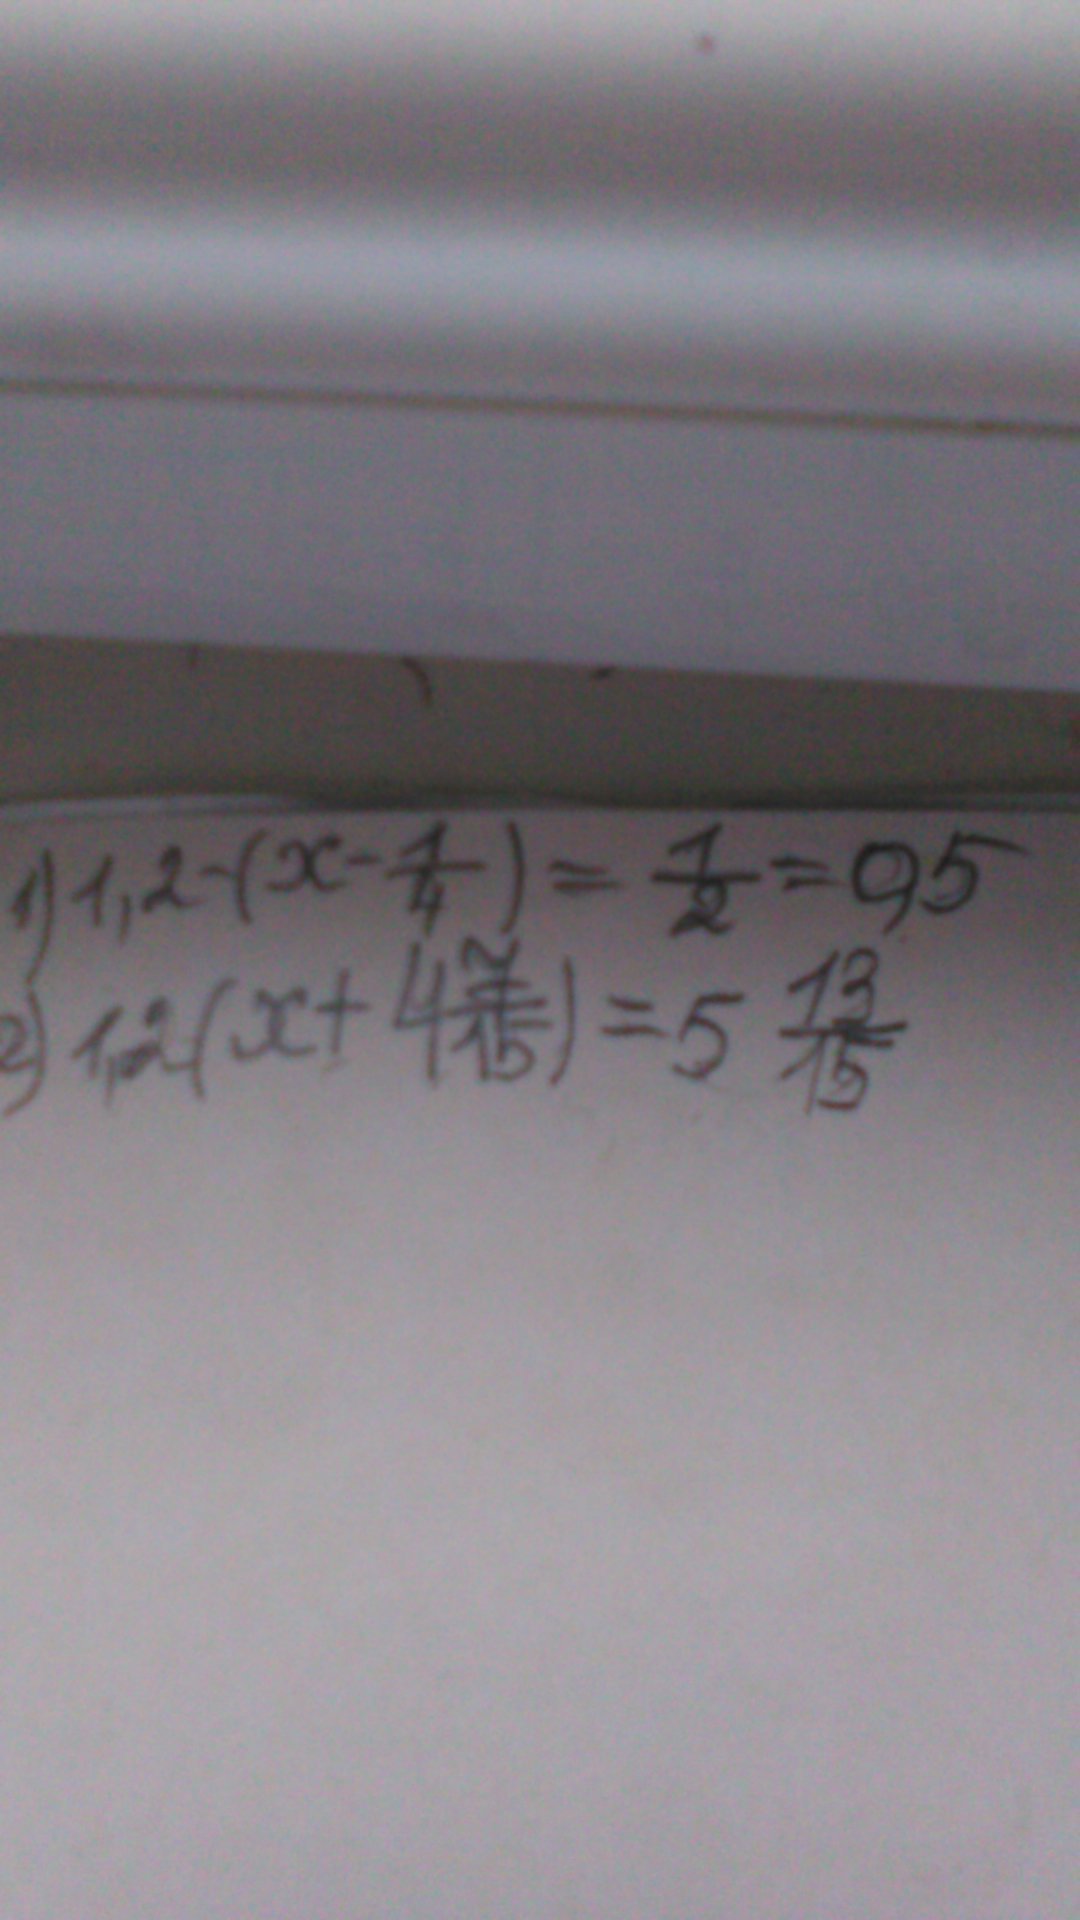 1) 1,2-(x-1/4)=1/2=0,5
2) 1,2(x+4 2/15)=5 13/15